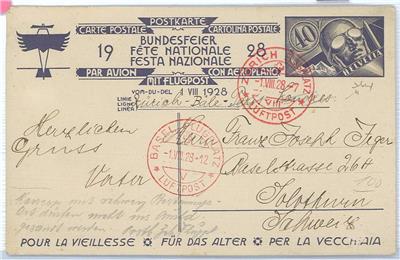 POSTKARTE
CARTE POSTALE CARTOLINA POSTALE
19 BUNDESFEIER 28
FÊTE NATIONALE
FESTA NAZIONALE
PAR AVION CON AEROPLANO
MIT FLUGPOST
VOM·DU·DEL 1 VIII 1928
LINIE
LIGNE
LINEA
Zürich-Bâle
40
HELVETIA
ZÜRICH FLUGPLATZ
-1.VIII.28.-
LUFTPOST
BASEL FLUGPLATZ
-1.VIII.28-12
V
LUFTPOST
Herzlichen
Gruss
Vater
Herrn Franz Joseph Jeger
Baselstrasse 264
Solothurn
Schweiz
100
POUR LA VIEILLESSE FÜR DAS ALTER PER LA VECCHAIA